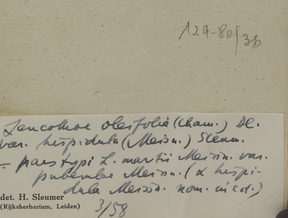 124-80/3b
Leucothoe oleifolia (Cham.) DC.
var. hispidula (Meissn.) Sleum.
= pars typi L. martii Meissn. var.
puberula Meissn. (α hispi-
dula Meissn. nom. ined.)
det. H. Sleumer
(Rijksherbarium, Leiden)
3/58